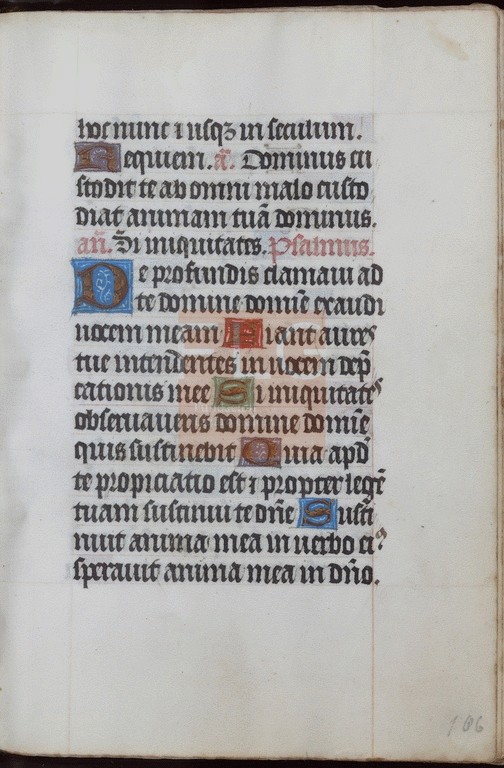 hoc nunc ⁊ usqꝫ in seculum.
Requiem. a᷒. Dominus cu
stodit te ab omni malo custo
diat animam tuã dominus.
añ. Si iniquitates. Psalmus.
De profundis clamaui ad
te domine domiẽ exaudi
uocem meam Fiant aures
tue intendentes in uocem dep̃
cationis mee Si iniquitates
obseruaueris domine domiẽ
quis sustinebit Quia apd̃
te propiciatio est ⁊ propter legẽ
tuam sustinui te dñe Susti
nuit anima mea in uerbo ei⁹
sperauit anima mea in dño.
106